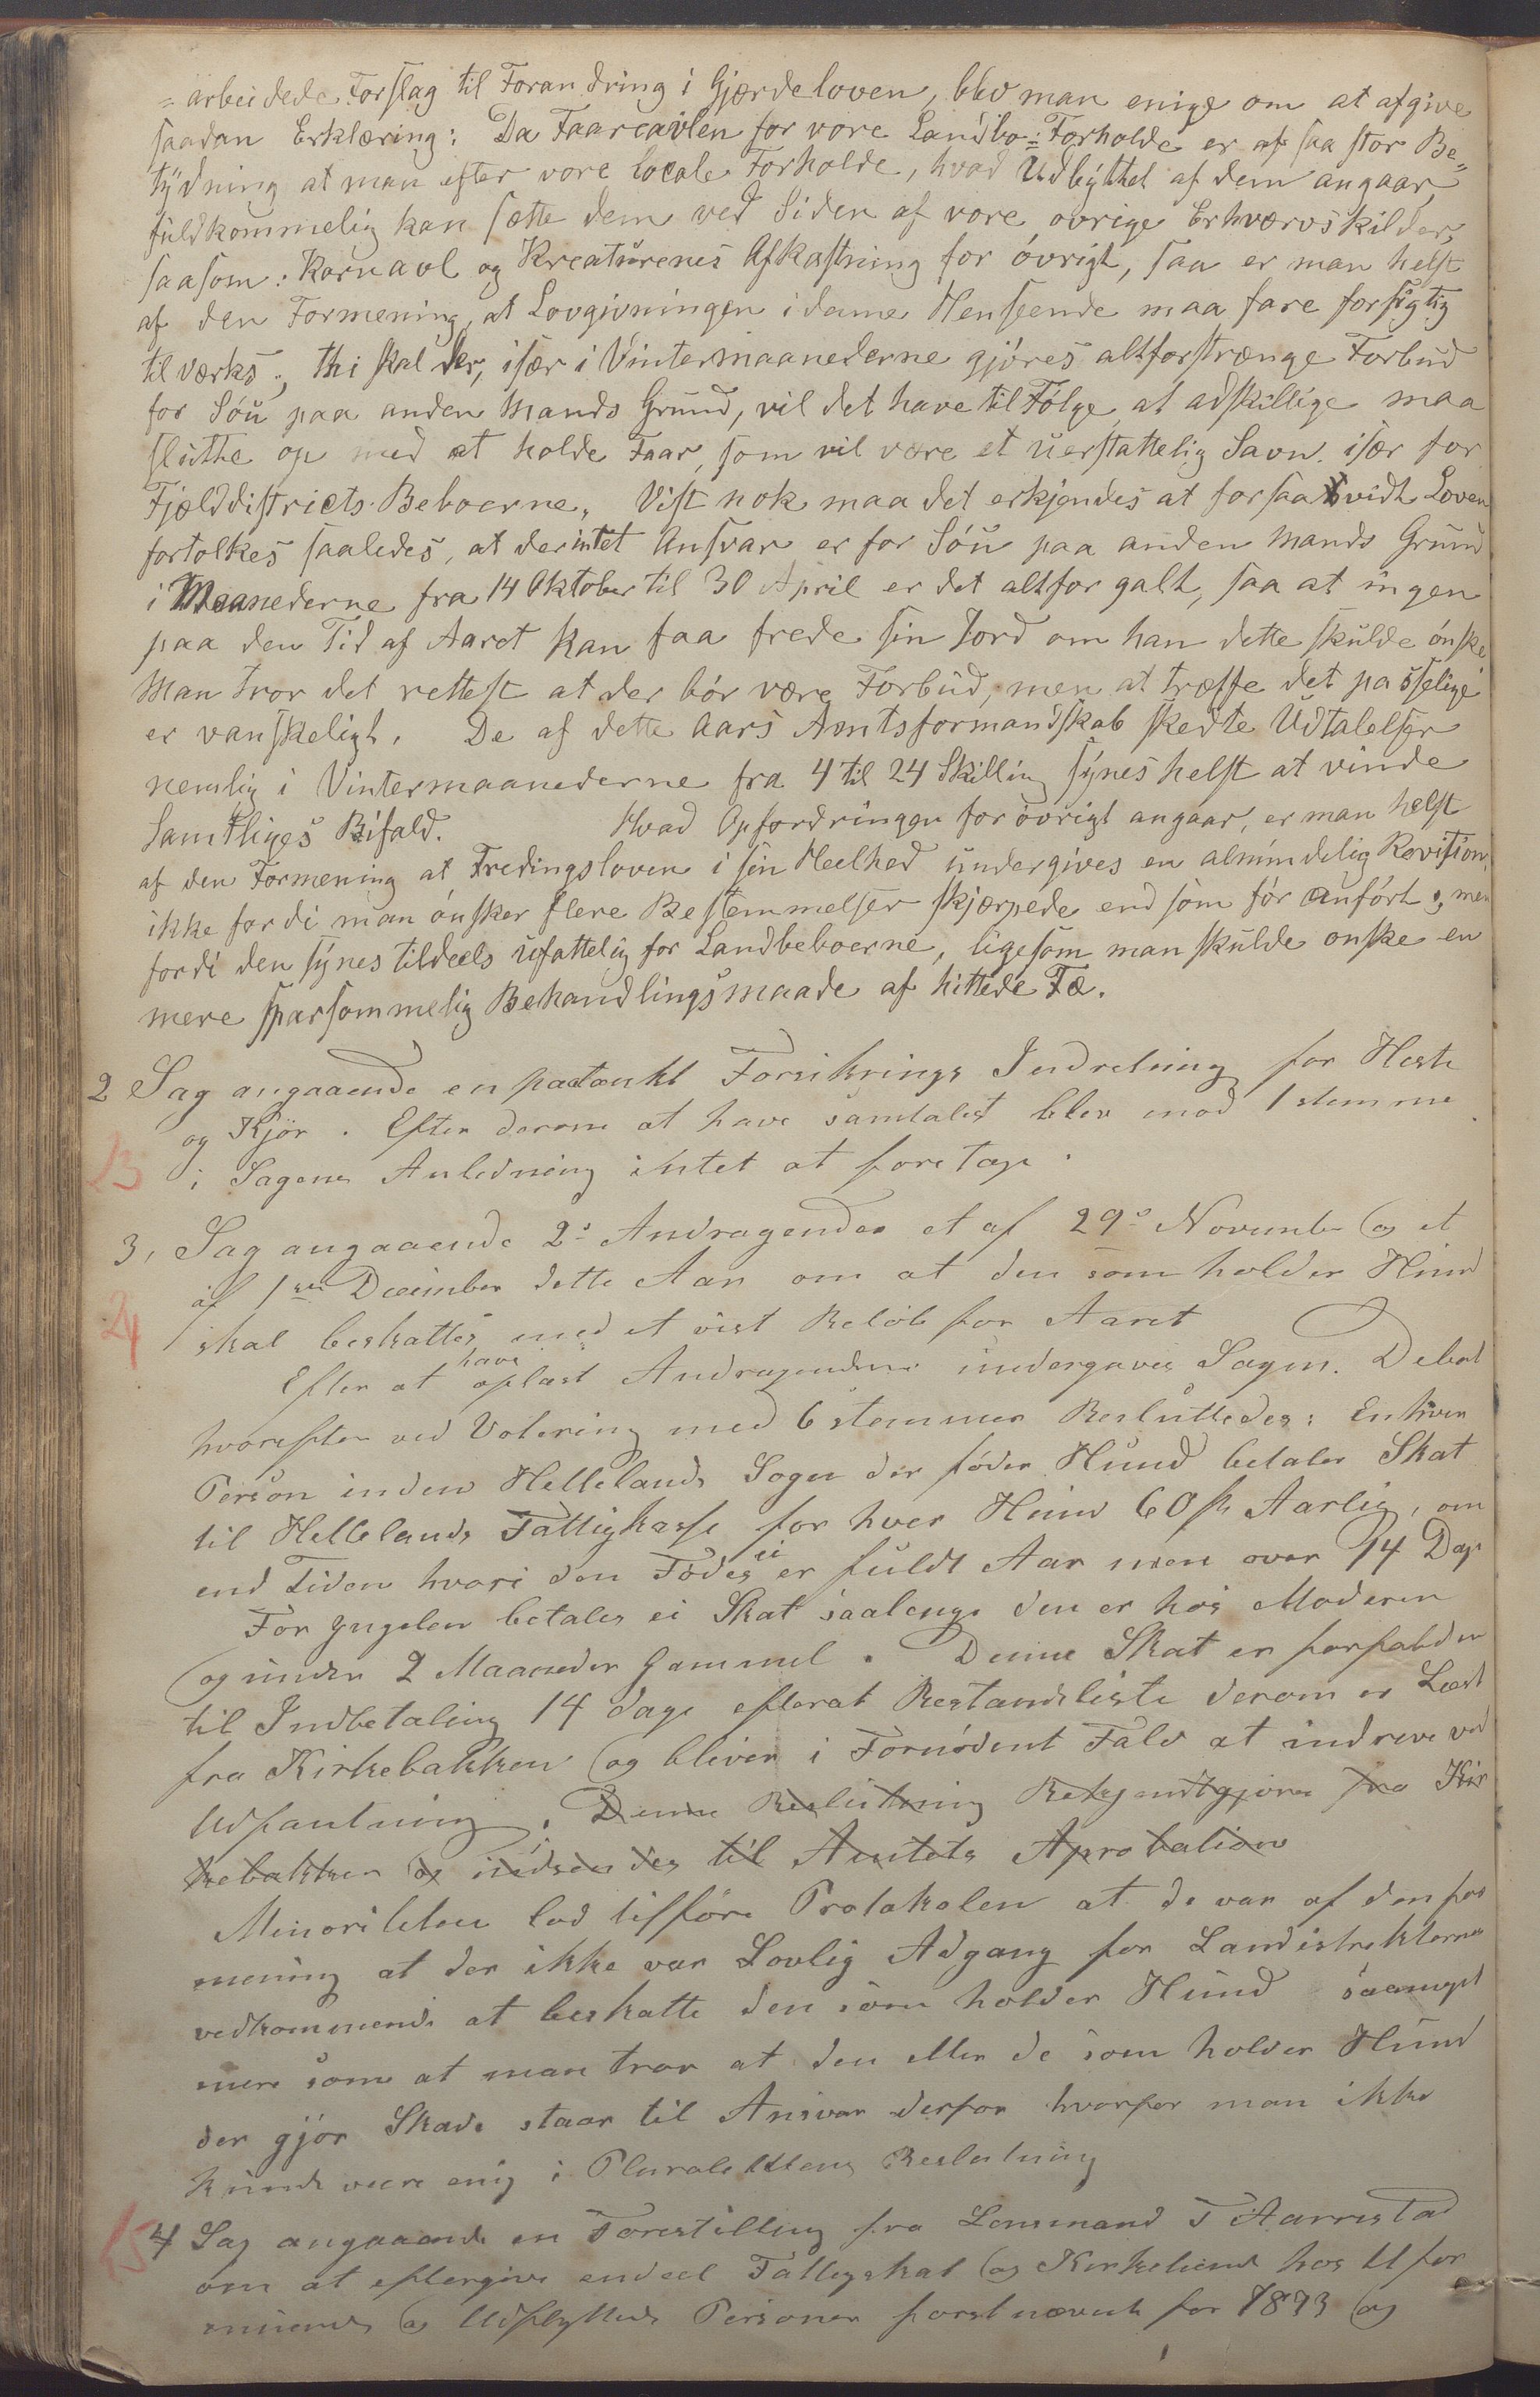 =arbeidede Forslag til Forandring i Gjærdeloven, blev man enige om at afgive
saadan Erklæring: Da Faareavlen for vore Landbo=Forholde er af saa stor Be=
tydning at man efter vore locale Forholde, hvad Udbyttet af dem angaar,
fuldkommelig kan sætte dem ved Siden af vore øvrige Erhværvskilder,
saasom: Kornavl og Kreaturenes Afkastning for óvrigt, saa er man helst
af den Formening, at Lovgivningen i denne Henseende maa fare forsigtig
til værks; thi skal der, især i Vintermaanederne gjóres altforstrænge Forbud
for Sóu paa anden Mands Grund, vil det have til Fólge, at adskillige maa
slutte op med at holde Faar, som vil være et uerstattelig Savn, især for
Fjælddistriets Beboerne. Vist nok maa det erkjendes at forsaavidt Loven
fortolkes saaledes, at der intet Ansvar er for Sóu paa anden Mands Grund
i Maanederne fra 14 Oktober til 30 April er det altfor galt, saa at ingen
paa den Tid af Aaret kan faa frede sin Jord om han dette skulde ónske
Man tror det rettest at der bór være Forbud, men at træffe det passelige
er vanskeligt. De af dette Aars Amtsformandskab skedte Udtalelser
nemlig i Vintermaanederne fra 4 til 24 Skilling synes helst at vinde
Samtliges Bifald. Hvad Opfordringen for óvrigt angaar, er man helst
af den Formening at Fredingsloven i sin Heelhed undergives en almindelig Revision,
ikke fordi man ónsker flere Bestemmelser skjærpede end som fór anfórt, men
fordi den synes tildeels ufattelig for Landbeboerne, ligesom man skulde onske en
mere sparsommelig Behandlingsmaade af hittede Fæ.
2 Sag angaaende en paatænkt Forsikrings Indretning for Heste
og Kjör. Efter derom at have samtalet blev mod 1 stemme
13 i Sagens Anledning intet at foretage.
3, Sag angaaende 2de Andragender et af 29de November og et
af 1ste December dette Aar om at den som holder Hund
24 skal beskattes med et vist Beløb for Aaret
Efter at have oplæst Andragenderne undergaves Sagen Debat
hvorefter ved Votering med 6 stemmer Besluttedes: Enhver
Person inden Hellelands Sogn der föder Hund betaler Skat
til Hellelands Fattigkasse for hver Hund 60 sk Aarlig, om
end Tiden hvori den Födes ei er fuldt Aar men over 14 Dage
For Yngelen betales ei Skat saalenge den er hos Moderen
og under 2 Maaneder gammel. Denne Skat er forfalden
til Indbetaling 14 dage efterat Restandsliste derom er Læst
fra Kirkebakken og bliver i Fornödent Fald at inddreve ved
Udpantning. Denne Beslutning Bekjendtgjöres fra Kir
kebakken og indsendes til Amtets Aprobation
Minoriteten lod tilföre Protokolen at de var af den for
mening at der ikke var Lovlig Adgang for Landistrikterne
vedkommende at beskatte den som holder Hund saameget
mere som at man tror at den eller de som holder Hund
der gjör Skade staar til Ansvar derfor hvorfor man ikke
kunde være enig i Pluralitetens Beslutning
15 4 Sag angaaende en Forestilling fra Lensmand T Aarrestad
om at eftergive endeel Fattigskat og Kirkeliend hos Ufor
muende og Udflyttede Personer forstnævnte for 1873 og